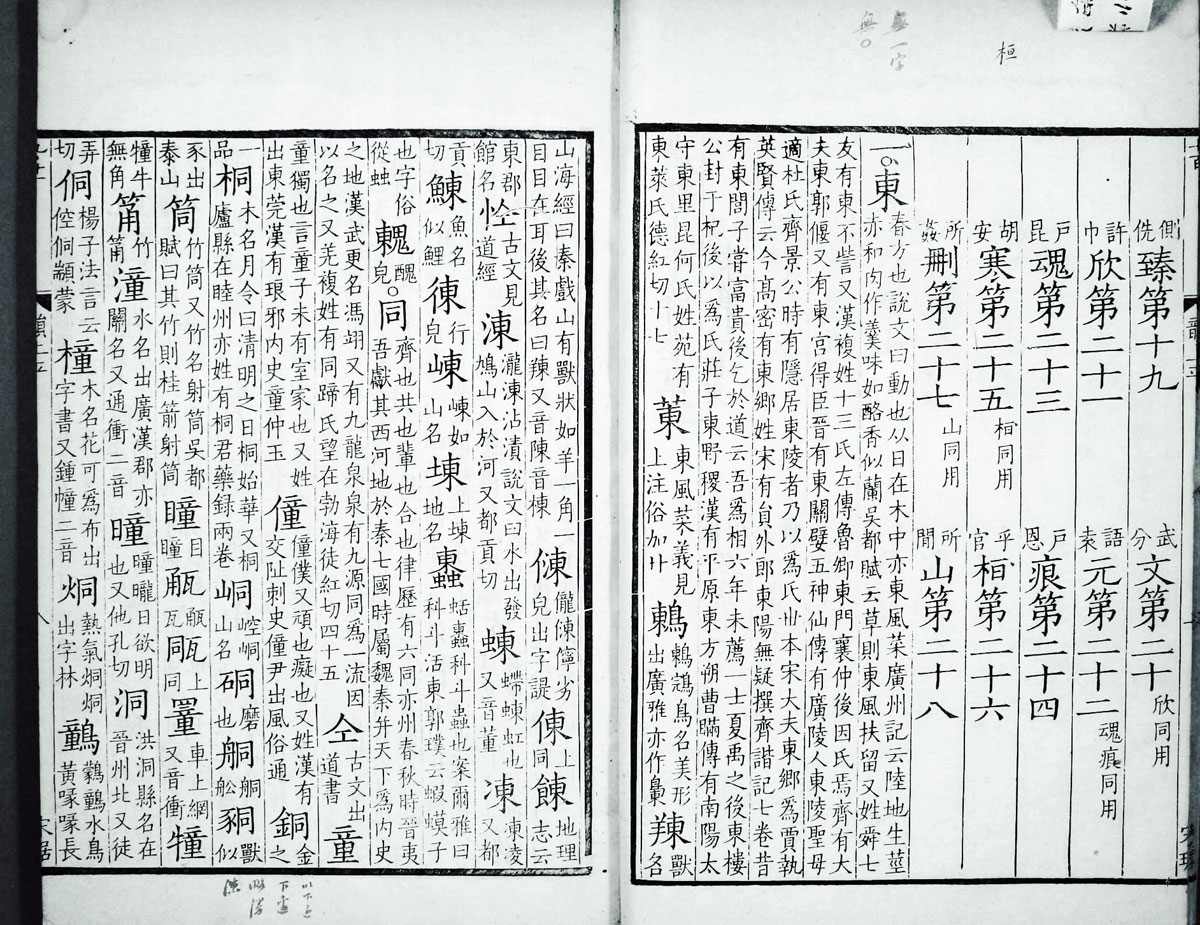 側詵臻第十九 武分文第二十欣同用
許巾欣第二十一 語袁元第二十二魂痕同用
戶昆魂第二十三 戶恩痕第二十四
胡安寒第二十五桓同用 乎官桓第二十六
所姦刪第二十七山同用 所閒山第二十八
一。東春方也說文曰動也从日在木中亦東風菜廣州記云陸地生莖赤和肉作羹味如酪香似蘭吳都賦云草則東風扶留又姓舜七
友有東不訾又漢複姓十三氏左傳魯卿東門襄仲後因氏焉齊有大夫東郭偃又有東宮得臣晉有東關嬖五神仙傳有廣陵人東陵聖母
適杜氏齊景公時有隱居東陵者乃以爲氏世本宋大夫東鄉爲賈執英賢傳云今高密有東鄉姓宋有員外郎東陽無疑撰齊諧記七卷昔
有東閭子嘗富貴後乞於道云吾爲相六年未薦一士夏禹之後東樓公封于杞後以爲氏莊子東野稷漢有平原東方朔曹瞞傳有南陽太
守東里昆何氏姓苑有東萊氏德紅切十七 菄東風菜義見上注俗加艹 鶇鶇鵍鳥名美形出廣雅亦作𪂝 䍶獸名
山海經曰秦戲山有獸狀如羊一角一目目在耳後其名曰䍶又音陳音棟 㑈儱㑈儜劣皃出字諟 倲上同 𩜍地理志云
東郡館名 𢘐古文見道經 涷瀧涷沾漬說文曰水出發鳩山入於河又都貢切 蝀螮蝀虹也又音董 凍凍凌又都
貢切 鯟魚名似鯉 徚行皃 崠崠如山名 埬上埬地名 𧓕蛞𧓕科斗蟲也案爾雅曰科斗活東郭璞云蝦蟆子
也字俗從䖵 䰤醜皃。同齊也共也輩也合也律歷有六同亦州春秋時晉夷吾獻其西河地於秦七國時屬魏秦并天下爲內史
之地漢武更名馮翊又有九龍泉泉有九源同爲一流因以名之又羌複姓有同蹄氏望在勃海徒紅切四十五 仝古文出道書 童
童獨也言童子未有室家也又姓出東莞漢有琅邪內史童仲玉 僮僮僕又頑也癡也又姓漢有交趾刺史僮尹出風俗通 銅金之
一品 桐木名月令曰清明之日桐始華又桐廬縣在睦州亦姓有桐君藥錄兩卷 峒崆峒山名 硐磨也 獸似
豕出泰山 筒竹筒又竹名射筒吳都賦曰其竹則桂箭射筒 瞳目瞳 㼧上同 罿車上網又音衝 犝
犝牛無角 筩竹筩 潼水名出廣漢郡亦關名又通衝二音 曈曈曨日欲明也又他孔切 洞洪洞縣名在晉州北又徒
弄切 侗楊子法言云倥侗顓蒙 橦木名花可爲布出字書又鍾幢二音 烔熱氣烔烔出字林 水鳥黃喙喙長
桓